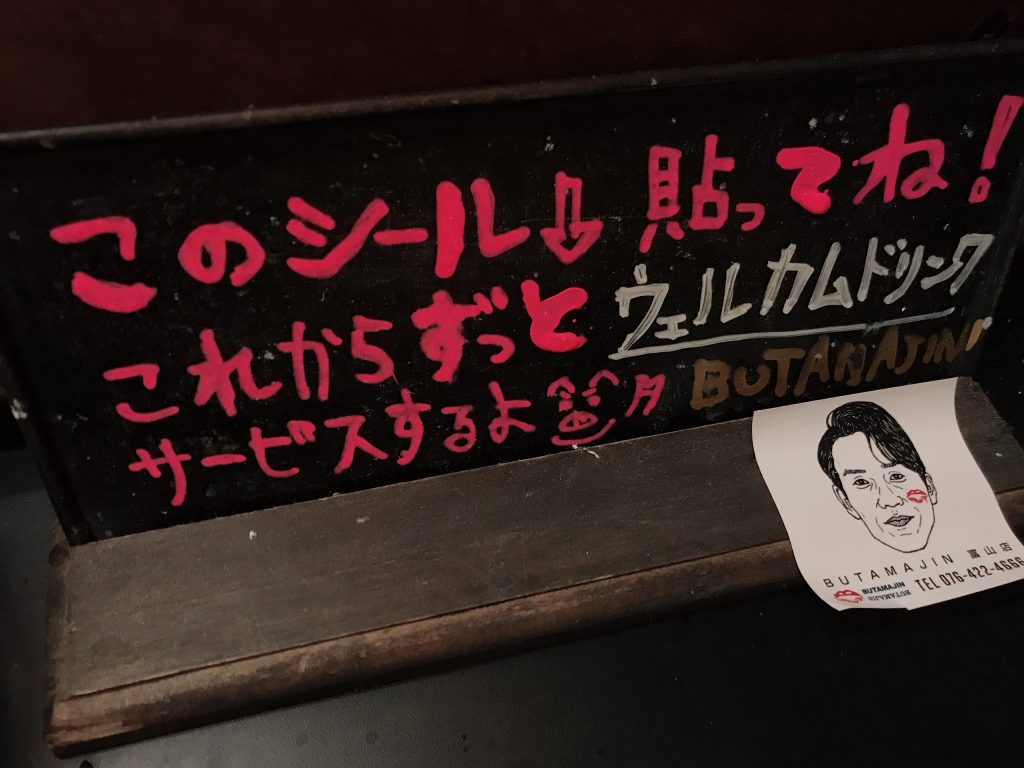 このシール↓貼ってね!
これからずっとウェルカムドリンク
サービスするよ
BUTAMAJIN
BUTAMAJIN 富山店
TEL 076-422-4666
BUTAMAJIN
BUTAMAJIN